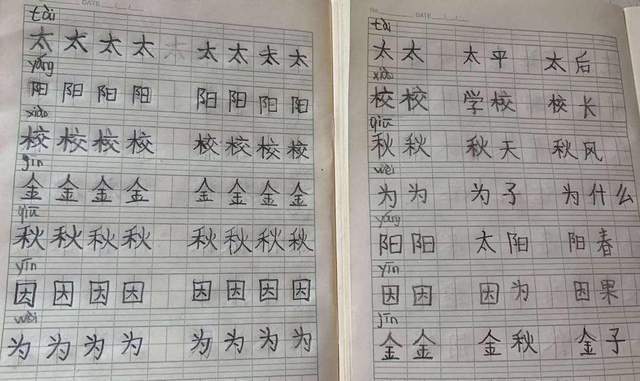 DATE
tài
太 太 太 太 太 太 太 太
yáng
阳 阳 阳 阳 阳 阳 阳 阳
xiào
校 校 校 校 校 校 校 校
jīn
金 金 金 金 金 金 金 金
qiū
秋 秋 秋 秋 秋 秋 秋 秋
yīn
因 因 因 因 因 因 因 因
wèi
为 为 为 为 为 为 为 为
DATE
tài
太 太 太 平 太 后
xiào
校 校 学 校 校 长
qiū
秋 秋 秋 天 秋 风
wèi
为 为 为 子 为 什 么
yáng
阳 阳 太 阳 阳 春
yīn
因 因 因 为 因 果
jīn
金 金 金 秋 金 子